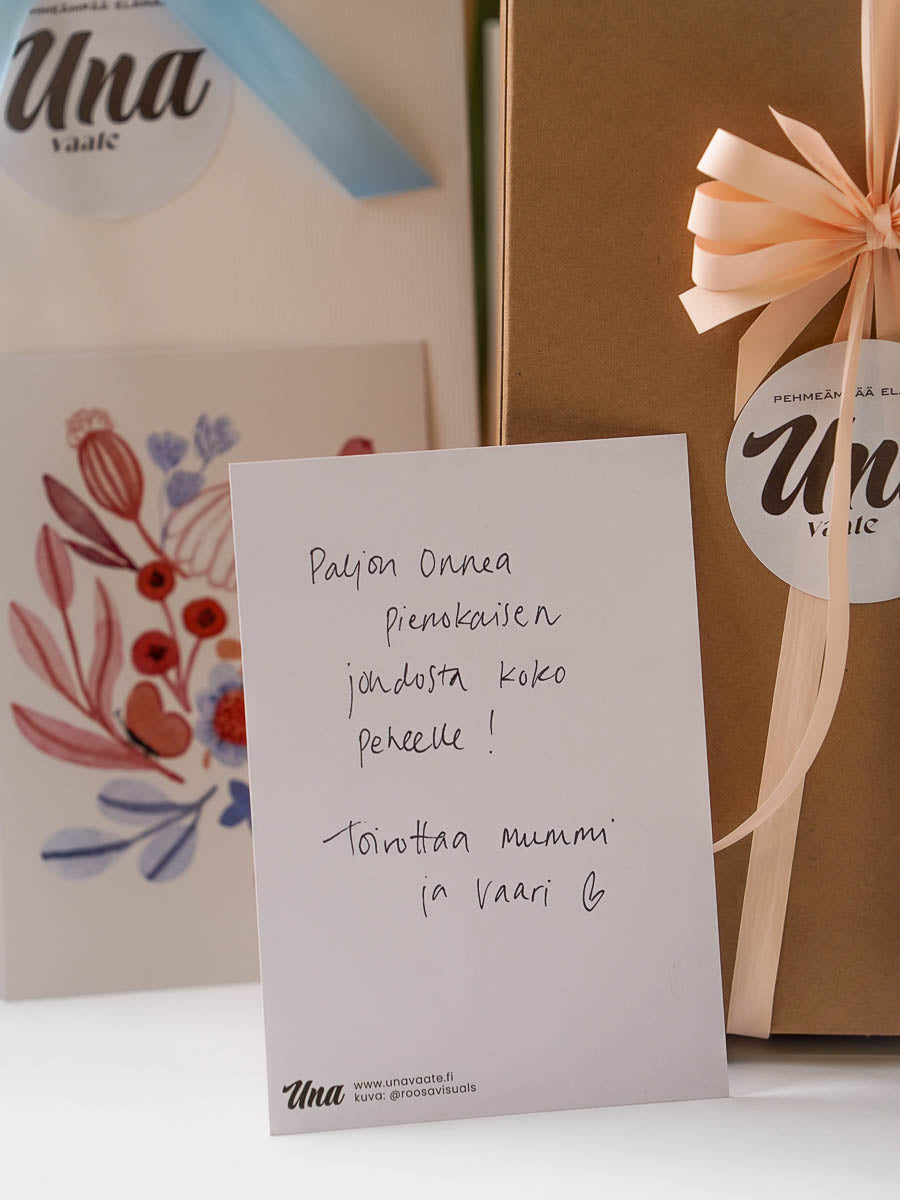 PEHMEÄMPÄÄ ELÄM
Una
vaate
PEHMEÄMPÄÄ ELÄ
Un
vaate
Paljon Onnea
pienokaisen
johdosta koko
peheelle!
Toivottaa mummi
ja vaari
Una
www.unavaate.fi
kuva: @roosavisuals